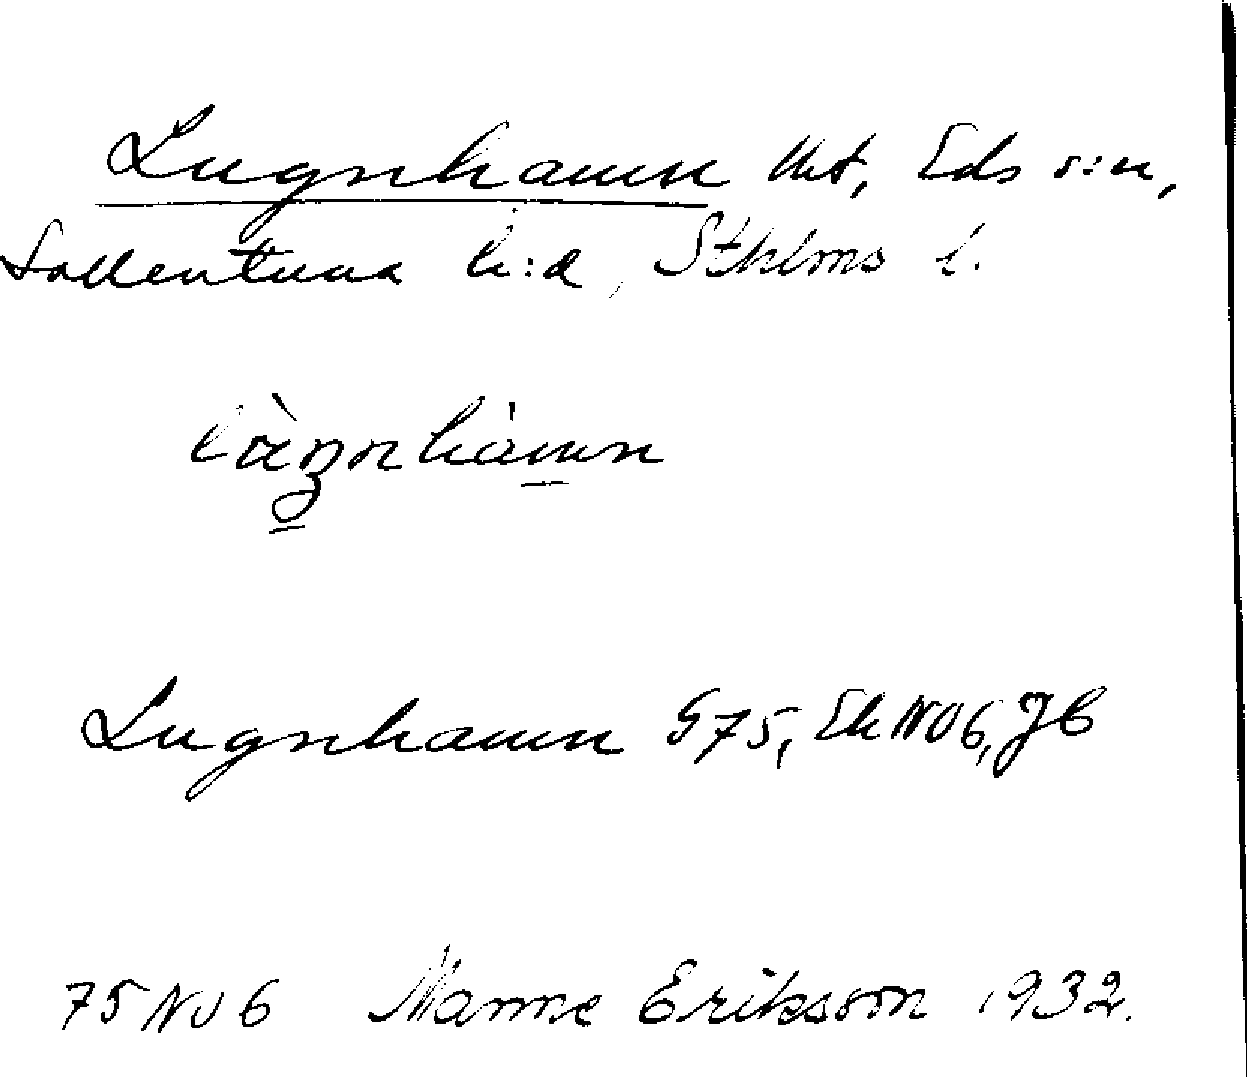 Lugnhamn Utt, Eds s:n,
Sollentuna h:d, Sthlms l.
Lugnhamn G75, Ek NO6, JB
75 NO 6 Manne Eriksson 1932.